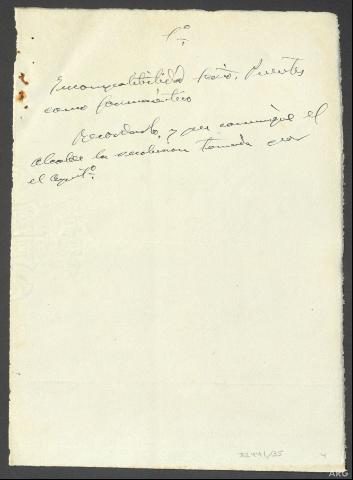 1º
Incompatibilidad Srio. Puentes
como farmacéutico
Recordarlo, y que comunique el
alcalde la resolucion tomada por
el Ayntº.
32441/35
4
ARG